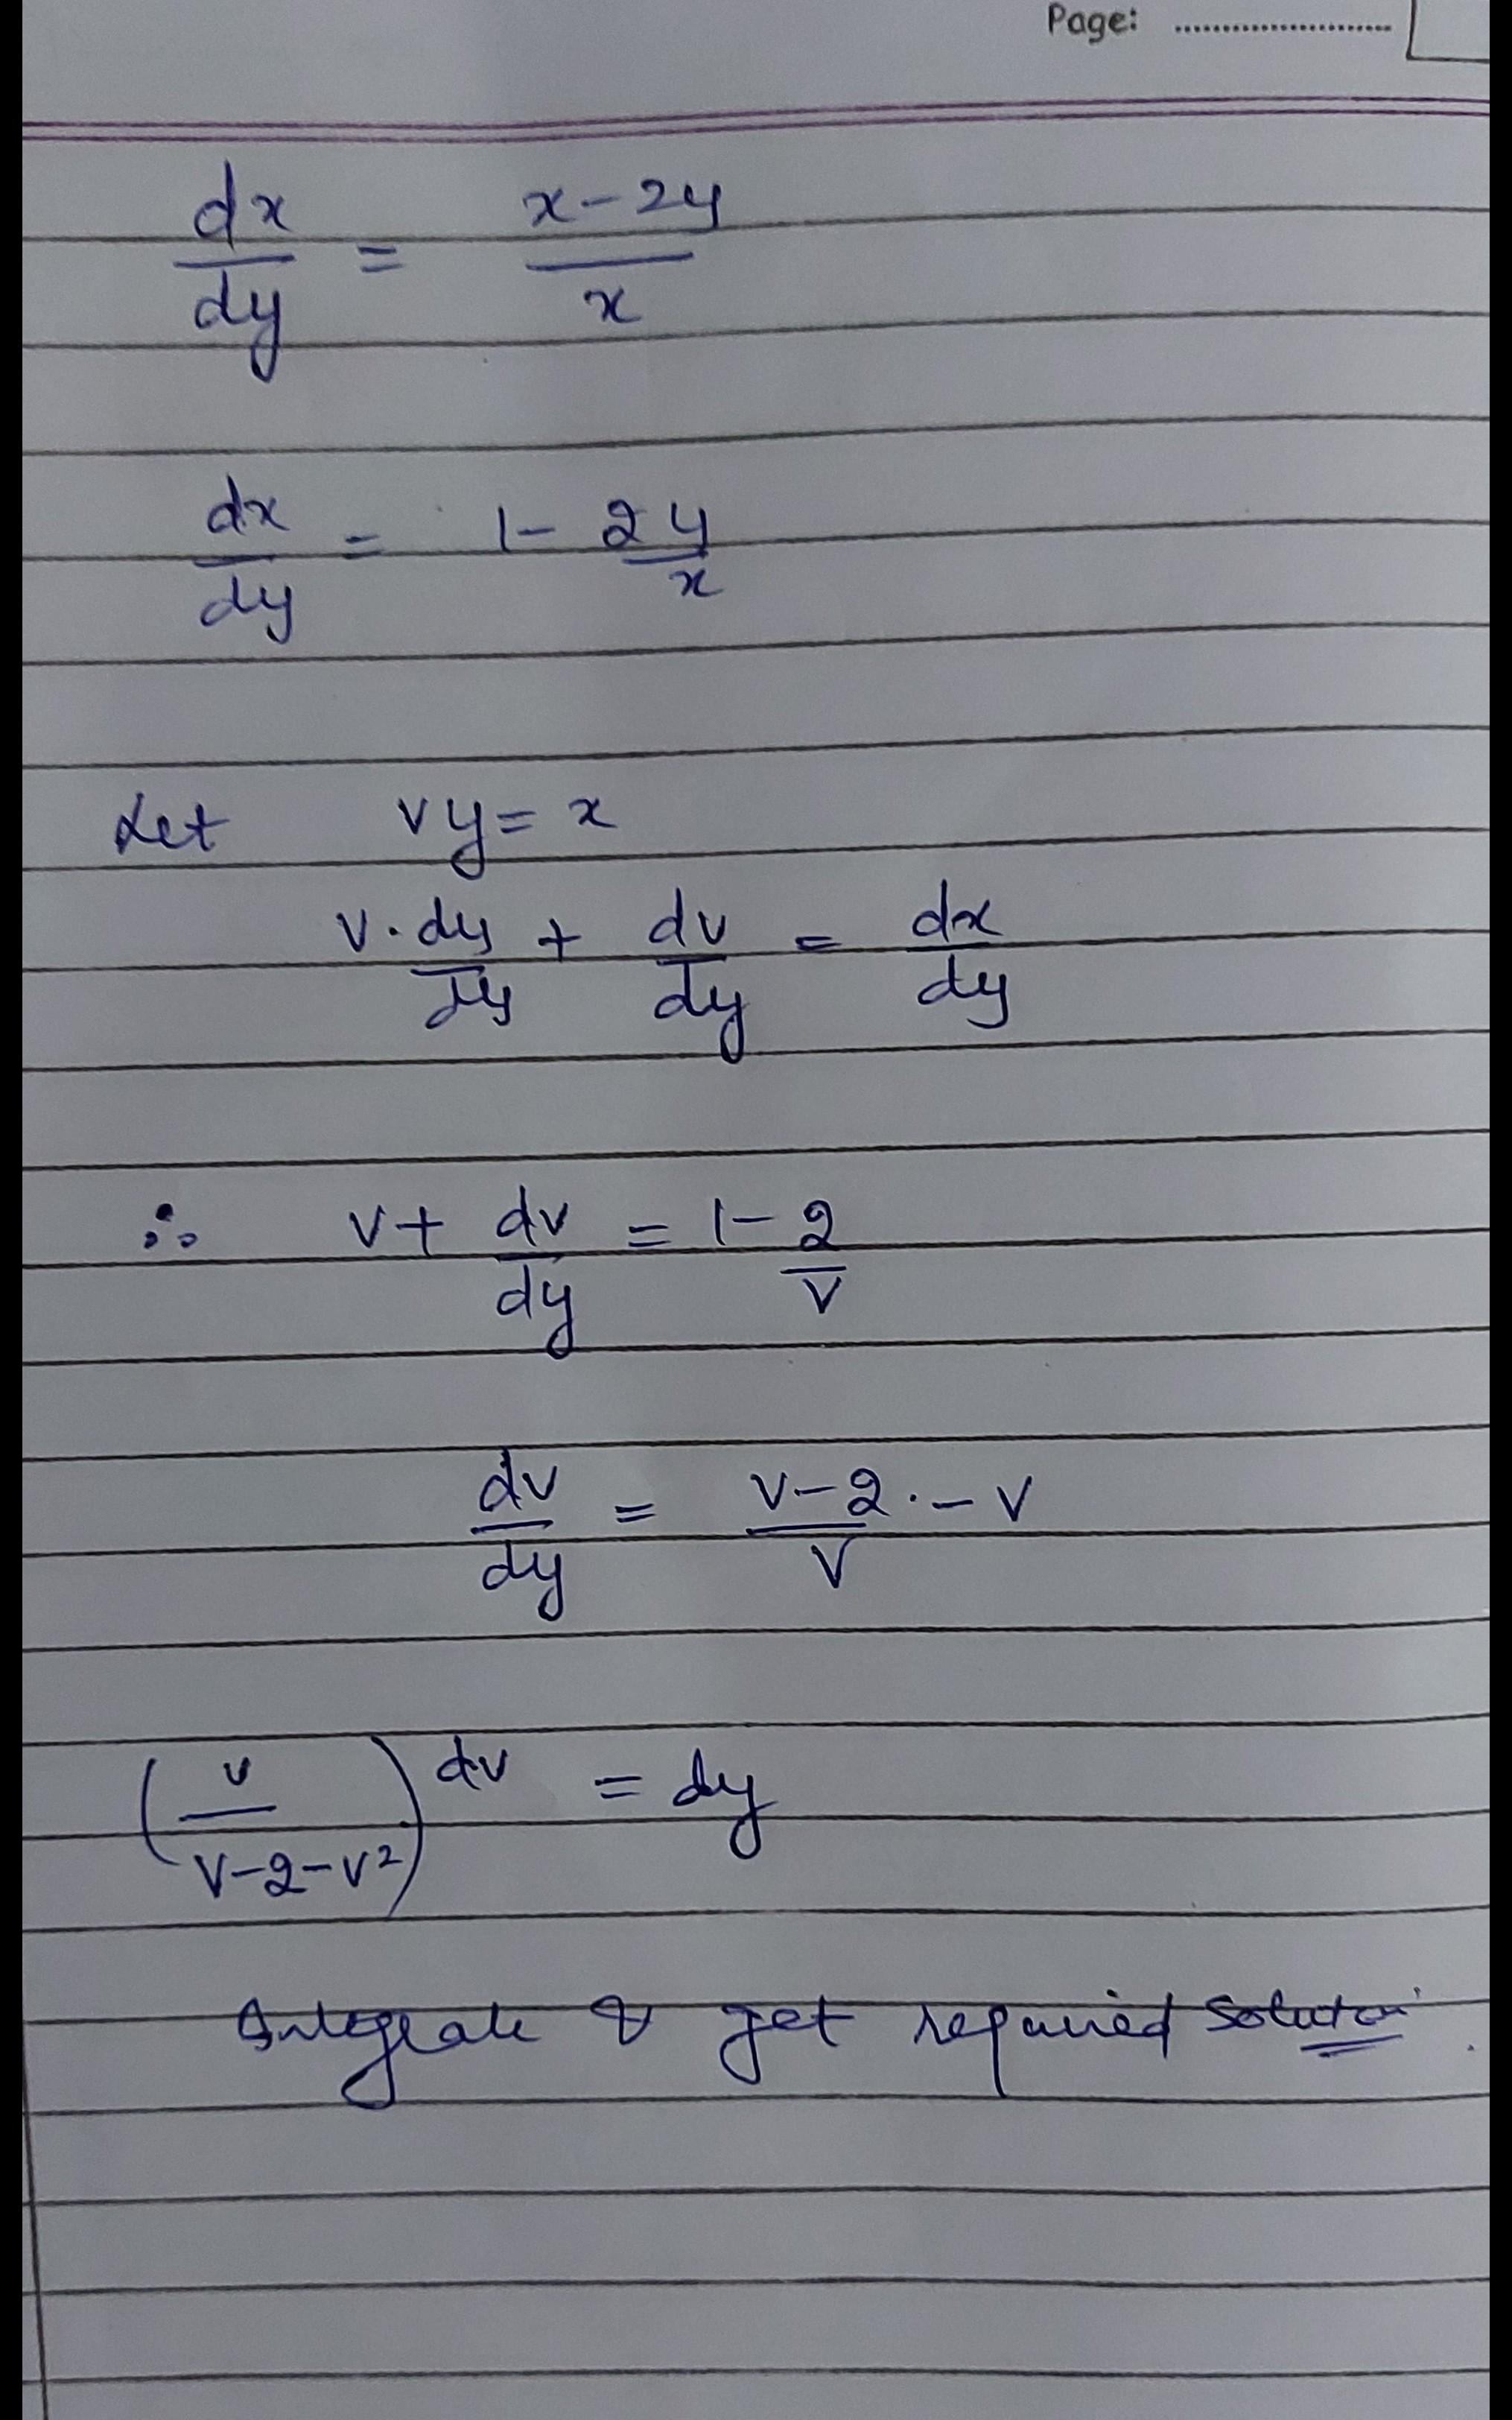 Page: ......................
dx/dy = (x-2y)/x
dx/dy = 1- 2y/x
Let vy = x
v·dy/dy + dv/dy = dx/dy
∴ v+ dv/dy = 1- 2/v
dv/dy = (v-2)/v · - v
(v/(v-2-v²)) dv = dy
Integrate & get required solution